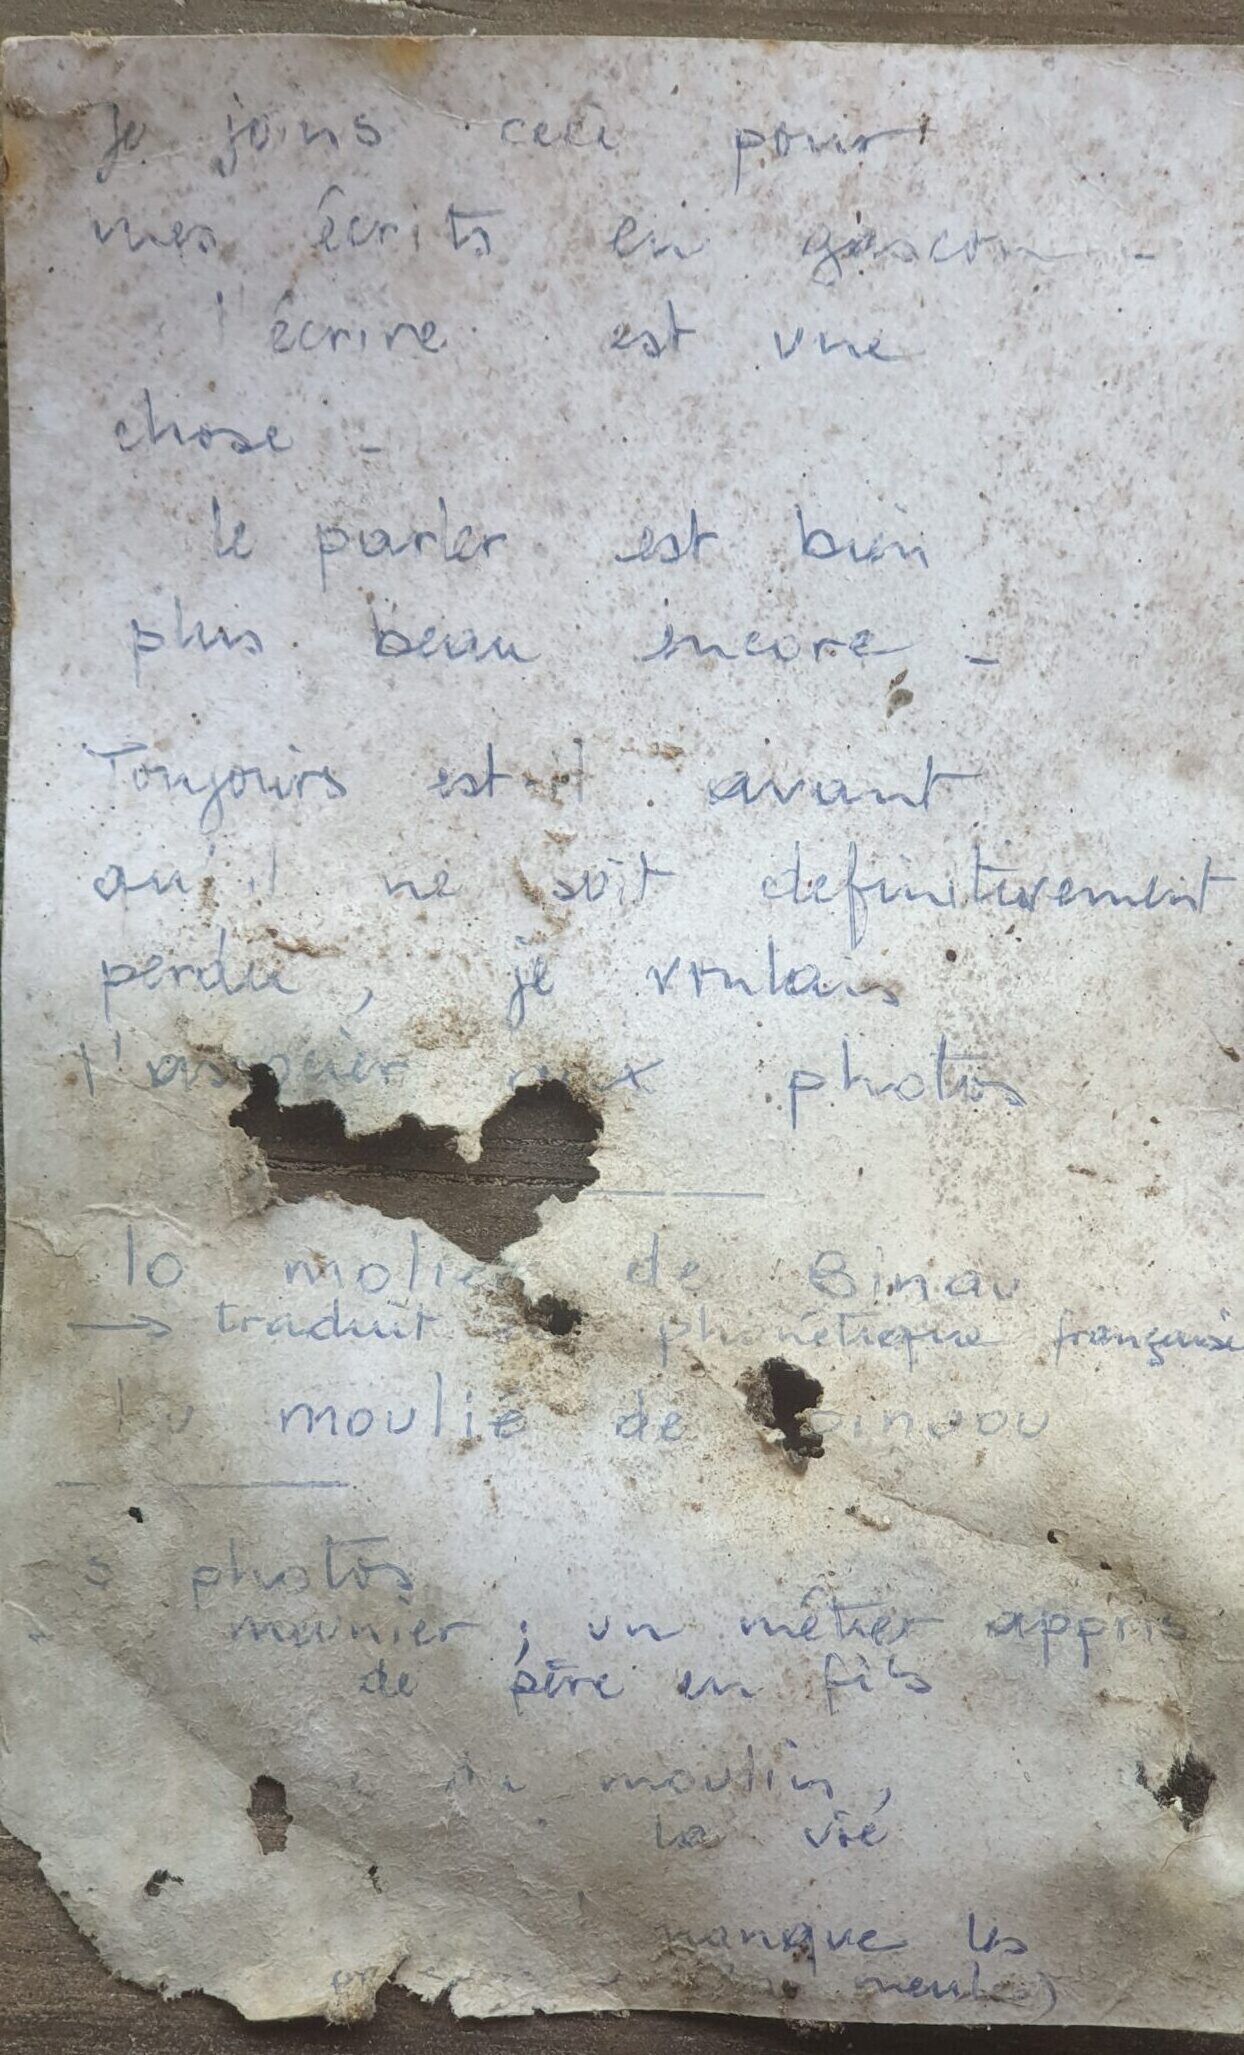 Je joins ceci pour
mes écrits en gascon -
l'écrire est une
chose -
le parler est bien
plus beau encore -
Toujours est-il avant
qu'il ne soit definitivement
perdu, je voulais
l'associer aux photos
lo molier de Binau
→ traduit phonétique française
lu moulié de
3 photos
meunier ; un métier appris
de père en fils
moulin,
la vie
manque les
meules)